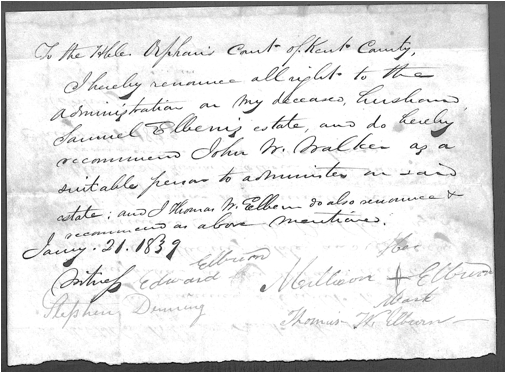 To the Hble. Orphan's Court of Kent County,
I hereby renounce all right to the
administration on my deceased, husband,
Samuel Elbern's estate, and do hereby
recommend John W. Walker as a
suitable person to administer on said
estate; and I Thomas W. Elbern do also renounce &
recommend as above mentioned.
Jany. 21. 1839
Witness Edward Elburn
Stephen Deming
her
+ Elburn
Mark
Thomas W. Elburn